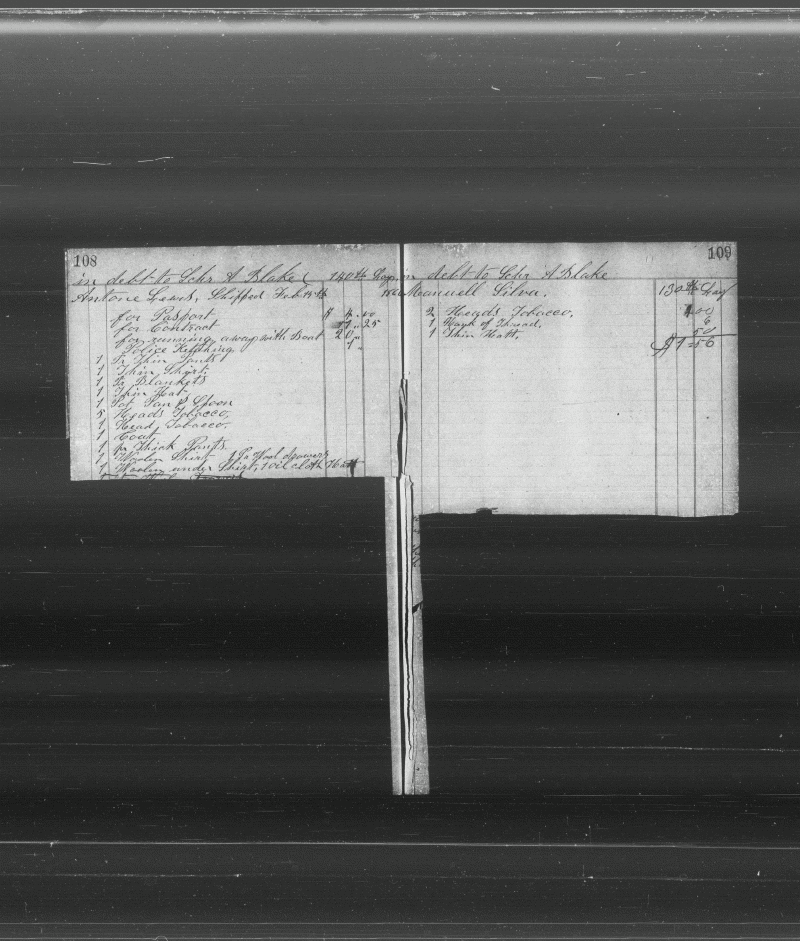 108
in debt to Schr A Blake ( 140th Lay
Antone Lewis, Shipped Feb 15th
for Pasport $ 4.00
for Contract 17.25
for running away with Boat 20"
Police
1 Pr Thin Pants
1 Thin Shirt
1 Pr Blankets
1 Thin Hat
1 Pot Pan & Spoon
5 Heads Tobacco,
1 Head Tobacco,
1 Coat
1 pr Thick Pants
1 Woolen Shirt 1 Pr Wool drawers
1 Woolen under Shirt, 1 oil cloth Hatt
109
in debt to Schr A Blake
Manuell Silva, 130th Lay
2 Heads Tobacco, 1.00
1 Hank of Thread, 6
1 Thin Hatt, 50
$ 1=56